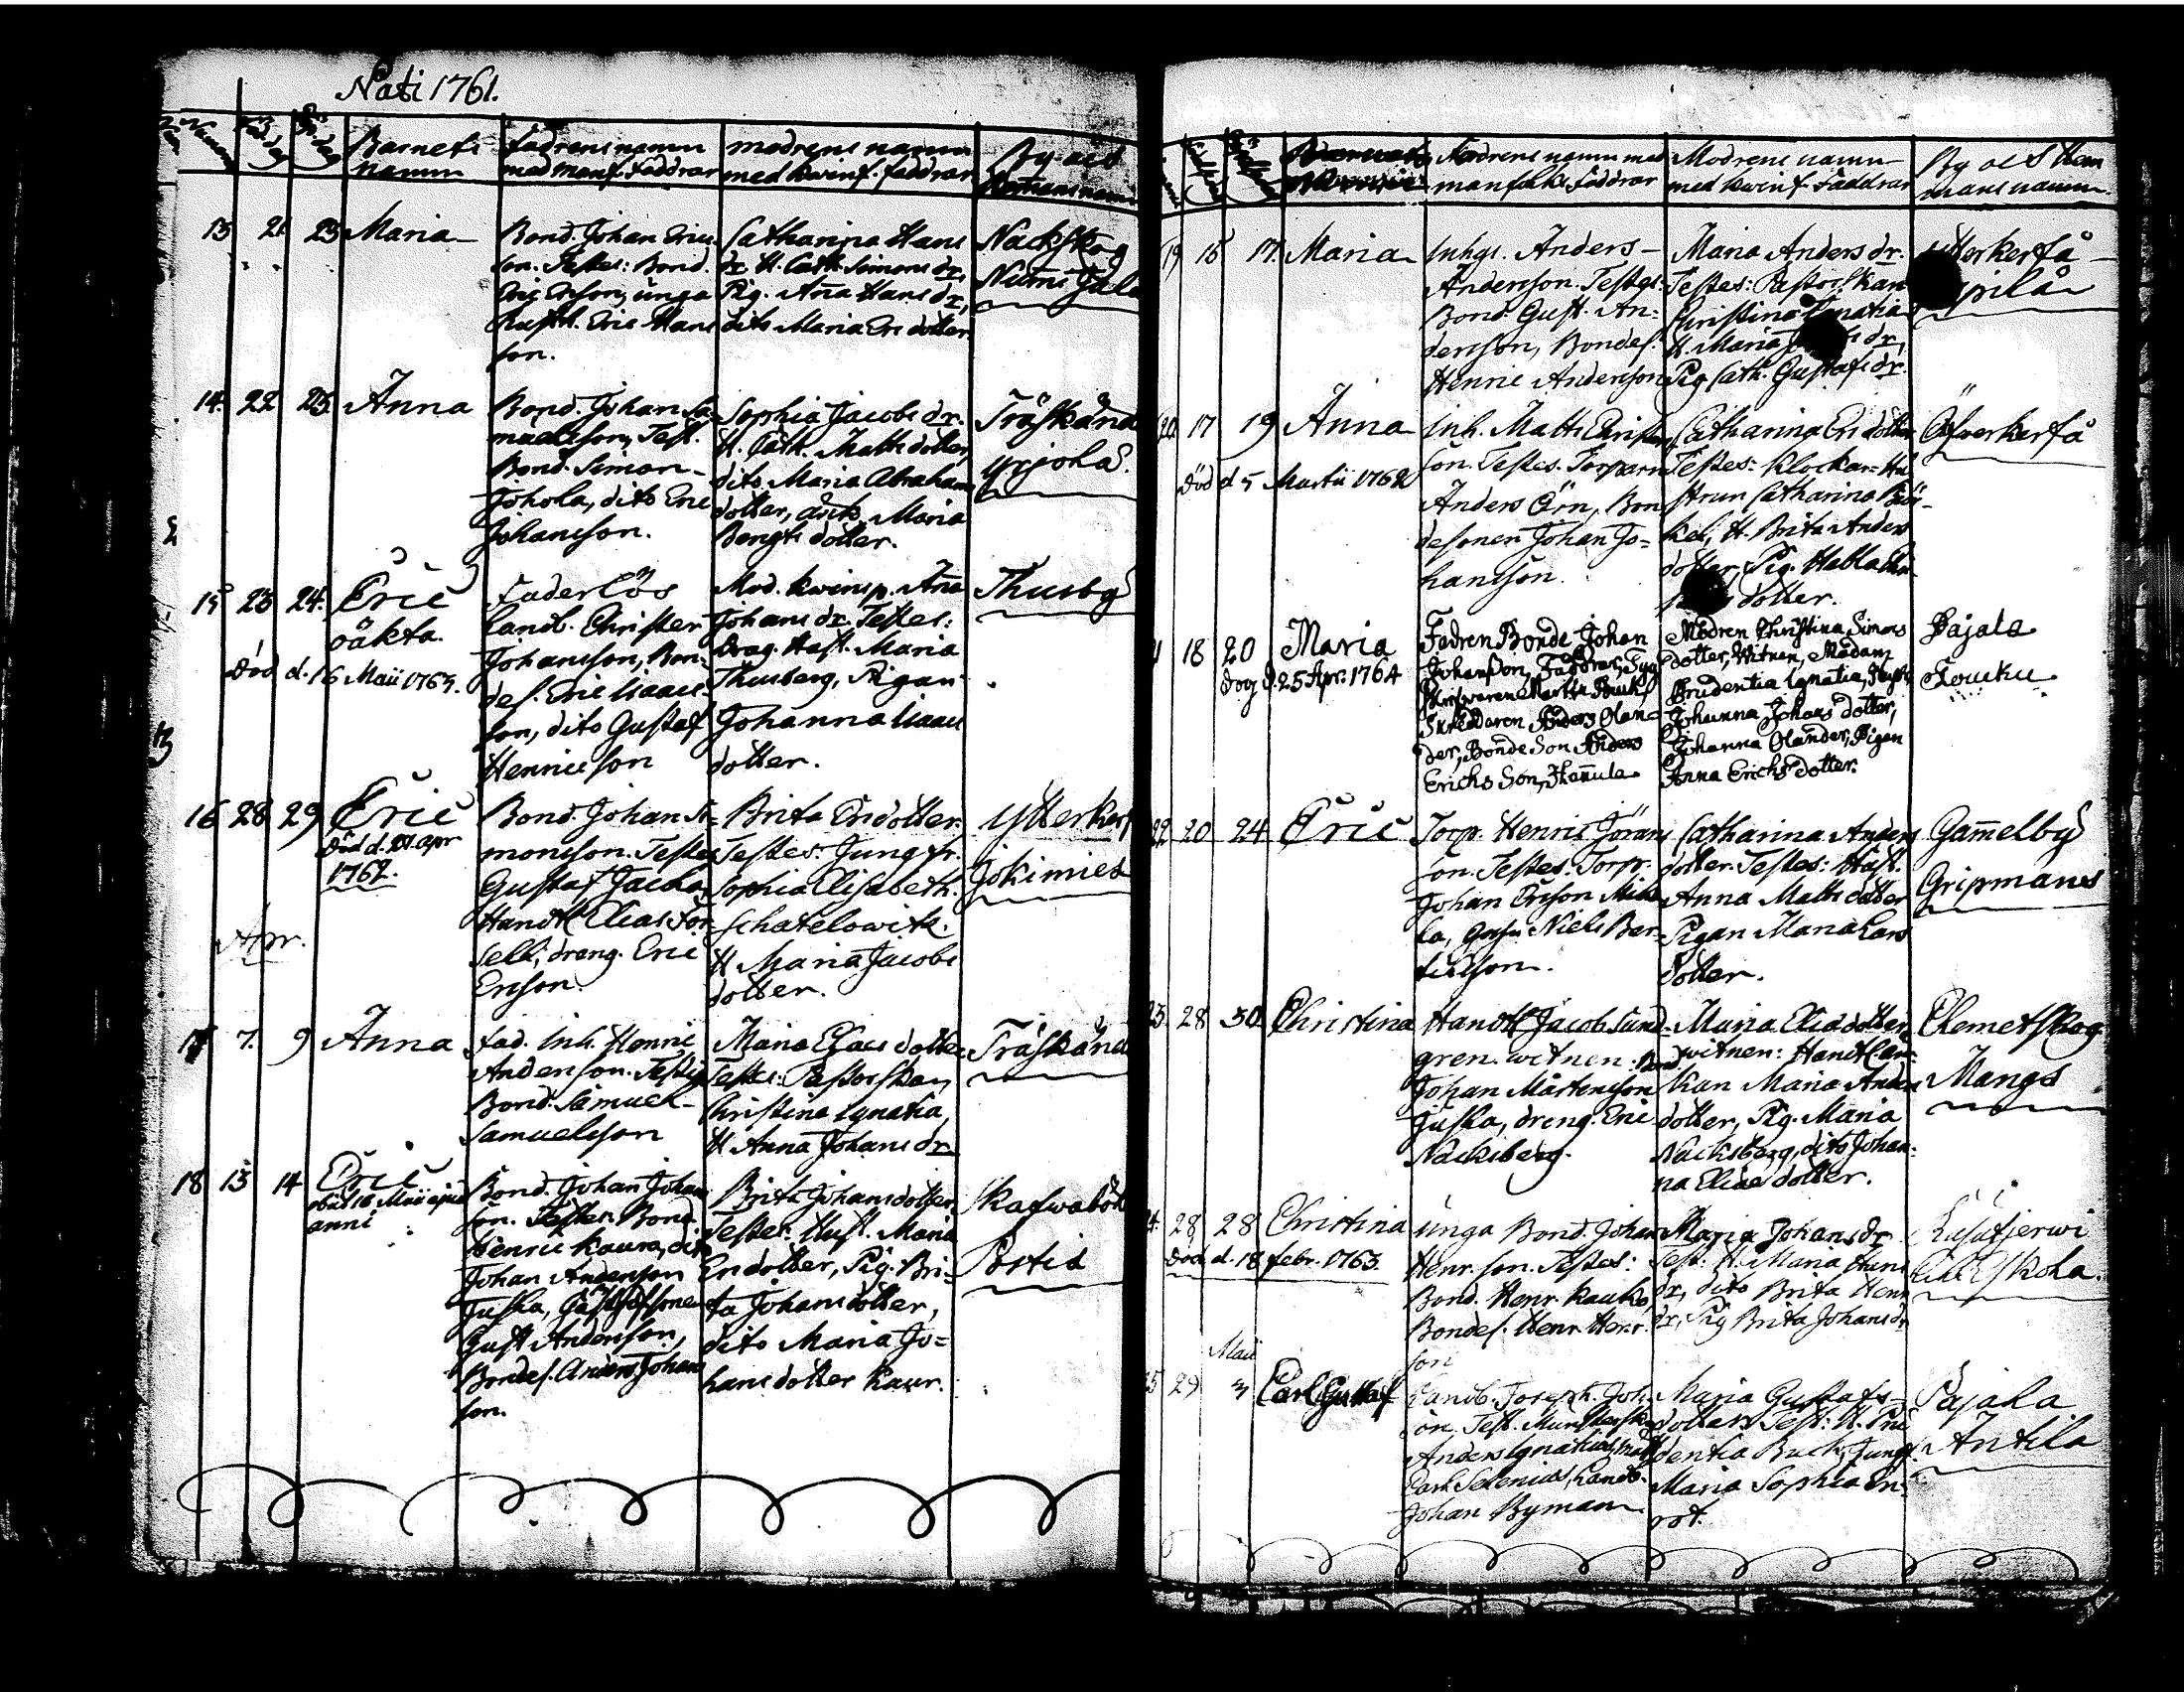 Nati 1761.
Barnets namn
Fadrens namn med Manf. faddrar
modrens namn med kvinf. faddrar
By ock
13 21 23 Maria
Bond. Johan Erics
son. Testes: Bond.
Eric Erson, unga
Eric Hans
son.
Catharina Hans
dr. H. Cath. Simons dr,
Pig. Ana Hans dr,
dito Maria Ers dotter
Nackskog
14. 22 23 Anna
Bond. Johan Sa-
muelsson, Test.
Bond. Simon
Johola, dito Eric
Johansson.
Sophia Jacobs dr.
H. Cath. Matts dotter
dito Maria Abrahams
dotter, Maria
Bengts dotter.
Träskända
yrjola.
15 23 24. Eric
oäkta.
död d. 16 Maii 1765.
Faderlös
Landb. Christer
Johansson, Bon-
des. Eric Isaacs-
son, dito Gustaf
Henricsson
Mod. kvinsp. Ana
Johans dr. Testes:
Drag. Hust. Maria
Thusberg, Pigan
Johanna Isaacs
dotter.
Thusby
16 28 29 Eric
död d. apr
1762.
Bond. Johan Si-
monsson. Testes
Gustaf
Handtl. Elias For-
sell, dreng. Eric
Erson.
Brita Ersdotter
Testes: Jungfr.
Sophia Elisabeth
Schatelowitz.
H. Maria Jacobs
dotter.
Ytterkers
Jokimies
Apr.
17 7. 9 Anna
Fad. Inh. Henric
Andersson. Testes
Bond. Samuel
Samuelsson
Maria Elias dotter
Testes: Pastorskan
Christina Ignatia,
H. Anna Johans dr
Träskända
18 13 14 Eric
obiit 16 Maii ejusd.
anni
Bond. Johan Johans
son. Testes. Bond.
Henric Kaura, dito
Johan Andersson
Juska,
Gust. Andersson,
Bondes. Anders Johans
son.
Brita Johansdotter
Testes: Hust. Maria
Ersdotter, Pig. Bri-
ta Johansdotter,
dito Maria Jo=
hansdotter Kaur.
Skafwaböle
Postis
Fadrens namn med
manfolks Faddrar
Modrens namn
med kwinf. Faddrar
By och Hem
mans namn.
19 16 17. Maria
Inhys. Anders
Andersson. Testes:
Bond. Gust. An=
dersson, Bondes.
Henric Andersson
Maria Anders dr.
Testes: Pastorskan
Christina Ignatia
H. Maria dr,
Pig. Cath. Gustafs dr.
Ytterkerfå
20 17 19 Anna
död d. 5 Martii 1762
Inh. Matts Christers
son. Testes. Torparn
Anders Örn, Bon
desonen Johan Jo=
hansson.
Catharina Ers dotter
Testes: Klockar=Hu
strun Catharina
H. Brita Anders
dotter, Pig.
dotter.
Öfverkerfå
18 20 Maria
dog d. 25 Apr. 1764
Fadren Bonde Johan
Johansson, Faddrar,
Martin Buck,
Skreddaren Anders Olan-
der, Bonde Son Anders
Erichs Son, Hannula
Modren Christina Simons
dotter, Witnen, Madam
Prudentia Ignatia, Hust.
Johanna Johans dotter,
Johanna Olander, Pigan
Anna Erichs dotter.
Pajala
Louku
22 20 24 Eric
Torp. Henric Görans
son. Testes. Torp.
Johan Erson Mik
la, Niels Ber-
tilsson.
Catharina Anders
dotter. Testes: Hust.
Anna Matts dotter
Pigan Maria Lars
dotter.
Gamelby
Gripmans
23. 28 30. Christina
Handtl. Jacob Sund-
gren. witnen. Bond.
Johan Mårtensson
Juska, dreng. Eric
Nacksberg.
Maria Elias dotter.
witnen: Handtl.
kan Maria Anders
dotter, Pig. Maria
Nacksberg, dito Johan-
na Elias dotter.
Clemetskog
Mangs
28 28 Christina
död d. 18 febr. 1763.
unga Bond. Johan
Henr. son. Testes:
Bond. Henr. Kauko
Bondes. Henr. Henr.
son
Maria Johans dr.
Test. H. Maria Hans
dr, dito Brita Henr
dr, Pig Brita Johans dr
Maii
25 29 3 Carl Gustaf
Landb. Joseph. Joh.
son. Test.
Anders Ignatius,
Carl Selenius, Landb.
Johan Byman
Maria Gustafs
dotter. Test: H. Pru
dentia Buck, Jungf.
Maria Sophia En=
rot.
Pajala
Antila